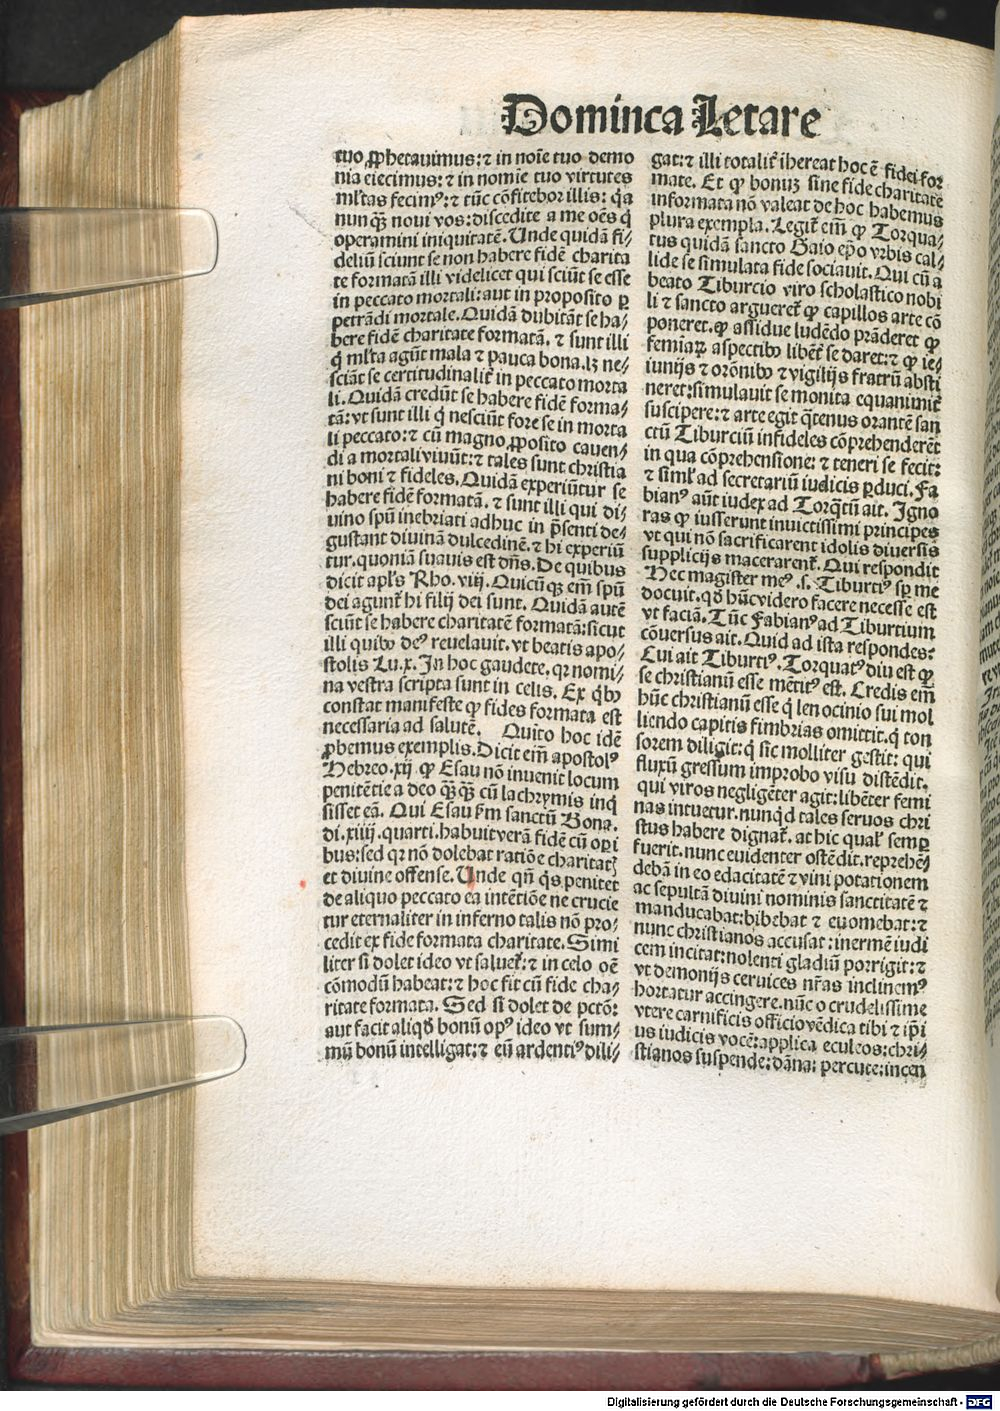 Dominca Letare
tuo ꝓphetauimus: ⁊ in noīe tuo demo
nia eiecimus: ⁊ in nomīe tuo virtutes
ml̓tas fecimꝰ: ⁊ tūc cōfitebor illis: q̄a
nun qȝ noui vos: discedite a me oēs q̄
operamini iniquitatē. Unde quidā fi⸗
deliū sciunt se non habere fidē charita
te formatā illi videlicet qui sciūt se esse
in peccato mortali: aut in proposito ꝑ
petrādi mortale. Quidā dubitāt se ha⸗
bere fidē charitate formatā. ⁊ sunt illi
q̄ ml̓ta agūt mala ⁊ pauca bona. lꝫ ne⸗
sciāt se certitudinalit̓ in peccato morta
li. Quidā credūt se habere fidē forma⸗
tā: vt sunt illi q̄ nesciūt fore se in morta
li peccato: ⁊ cū magno ꝓposito cauen⸗
di a mortali viuūt: ⁊ tales sunt christia
ni boni ⁊ fideles. Quidā experiūtur se
habere fidē formatā. ⁊ sunt illi qui di⸗
uino spū inebriati adhuc in p̄senti de⸗
gustant diuinā dulcedinē. ⁊ hi experiū
tur. quoniā suauis est dn̄s. De quibus
dicit apl̓s Rho. viij. Quicūqȝ em̄ spū
dei agunt̓ hi filij dei sunt. Quidā autē
sciūt se habere charitatē formatā: sicut
illi quibꝰ deꝰ reuelauit. vt beatis apo⸗
stolis Lu. x. In hoc gaudete. qꝛ nomi⸗
na vestra scripta sunt in celis. Ex q̄bꝰ
constat manifeste ꝙ fides formata est
necessaria ad salutē. Quito hoc idē
ꝓbemus exemplis. Dicit em̄ apostolꝰ
Hebreo. xij. ꝙ Esau nō inuenit locum
penitētie a deo qȝqȝ cū lachrymis inq̄
sisset eā. Qui Esau ẜm sanctū Bona.
di. xiiij. quarti. habuit verā fidē cū oꝑi
bus: sed qꝛ nō dolebat ratiōe charitatꝭ
et diuine offense. Unde qn̄ q̄s penitet
de aliquo peccato ea intētiōe ne crucie
tur eternaliter in inferno talis nō pro⸗
cedit ex fide formata charitate. Simi
liter si dolet ideo vt saluet̓: ⁊ in celo oē
cōmodū habeat: ⁊ hoc fit cū fide cha⸗
ritate formata. Sed si dolet de pctō:
aut facit aliqđ bonū opꝰ ideo vt sum⸗
mū bonū intelligat: ⁊ eū ardentiꝰ dili⸗
gat: ⁊ illi totalit̓ ihereat hoc ē fidei for
mate. Et ꝙ bonuꝫ sine fide charitate
informata nō valeat de hoc habemus
plura exempla. Legit̓ em̄ ꝙ Torqua⸗
tus quidā sancto Gaio ep̄o vrbis cal⸗
lide se simulata fide sociauit. Qui cū a
beato Tiburcio viro scholastico nobi
li ⁊ sancto argueret̓ ꝙ capillos arte cō
poneret. ꝙ assidue ludēdo prāderet ꝙ
femiaꝝ aspectibꝰ libēt̓ se daret: ⁊ ꝙ ie⸗
iunijs ⁊ orōnibꝰ ⁊ vigilijs fratrū absti
neret: simulauit se monita equanimit̓
suscipere: ⁊ arte egit q̄tenus orantē san
ctū Tiburciū infideles cōprehenderēt
in qua cōprehensione: ⁊ teneri se fecit:
⁊ siml̓ ad secretariū iudicis ꝑduci. Fa
bianꝰ aūt iudex ad Torq̄tū ait. Igno
ras ꝙ iusserunt inuictissimi principes
vt qui nō sacrificarent idolis diuersis
supplicijs macerarent̓. Qui respondit
Hec magister meꝰ .s. Tiburtiꝰ sꝑ me
docuit. qđ hūc videro facere necesse est
vt faciā. Tūc Fabianꝰ ad Tiburtium
cōuersus ait. Quid ad ista respondes:
Cui ait Tiburtiꝰ. Torquatꝰ diu est ꝙ
se christianū esse mētitꝰ est. Credis em̄
hūc christianū esse q̄ lenocinio sui mol
liendo capitis fimbrias omittit. q̄ ton
sorem diligit: q̄ sic molliter gestit: qui
fluxū gressum improbo visu distēdit.
qui viros negligēter agit: libēter femi
nas intuetur. nunq̄d tales seruos chri
stus habere dignat̓. at hic qual̓ semꝑ
fuerit. nunc euidenter ostēdit. reprehē⸗
debā in eo edacitatē ⁊ vini potationem
ac sepultā diuini nominis sanctitatē ⁊
manducabat: bibebat ⁊ euomebat: ⁊
nunc christianos accusat: inermē iudi
cem incitat: nolenti gladiū porrigit: ⁊
vt demonijs ceruices nr̄as inclinemꝰ
hortatur accingere. nūc o crudelissime
vtere carnificis officio vēdica tibi ⁊ ip̄i
us iudicis vocē: applica eculeos: chri⸗
stianos suspende: dāna: percute: incen
Digitalisierung gefördert durch die Deutsche Forschungsgemeinschaft - DFG